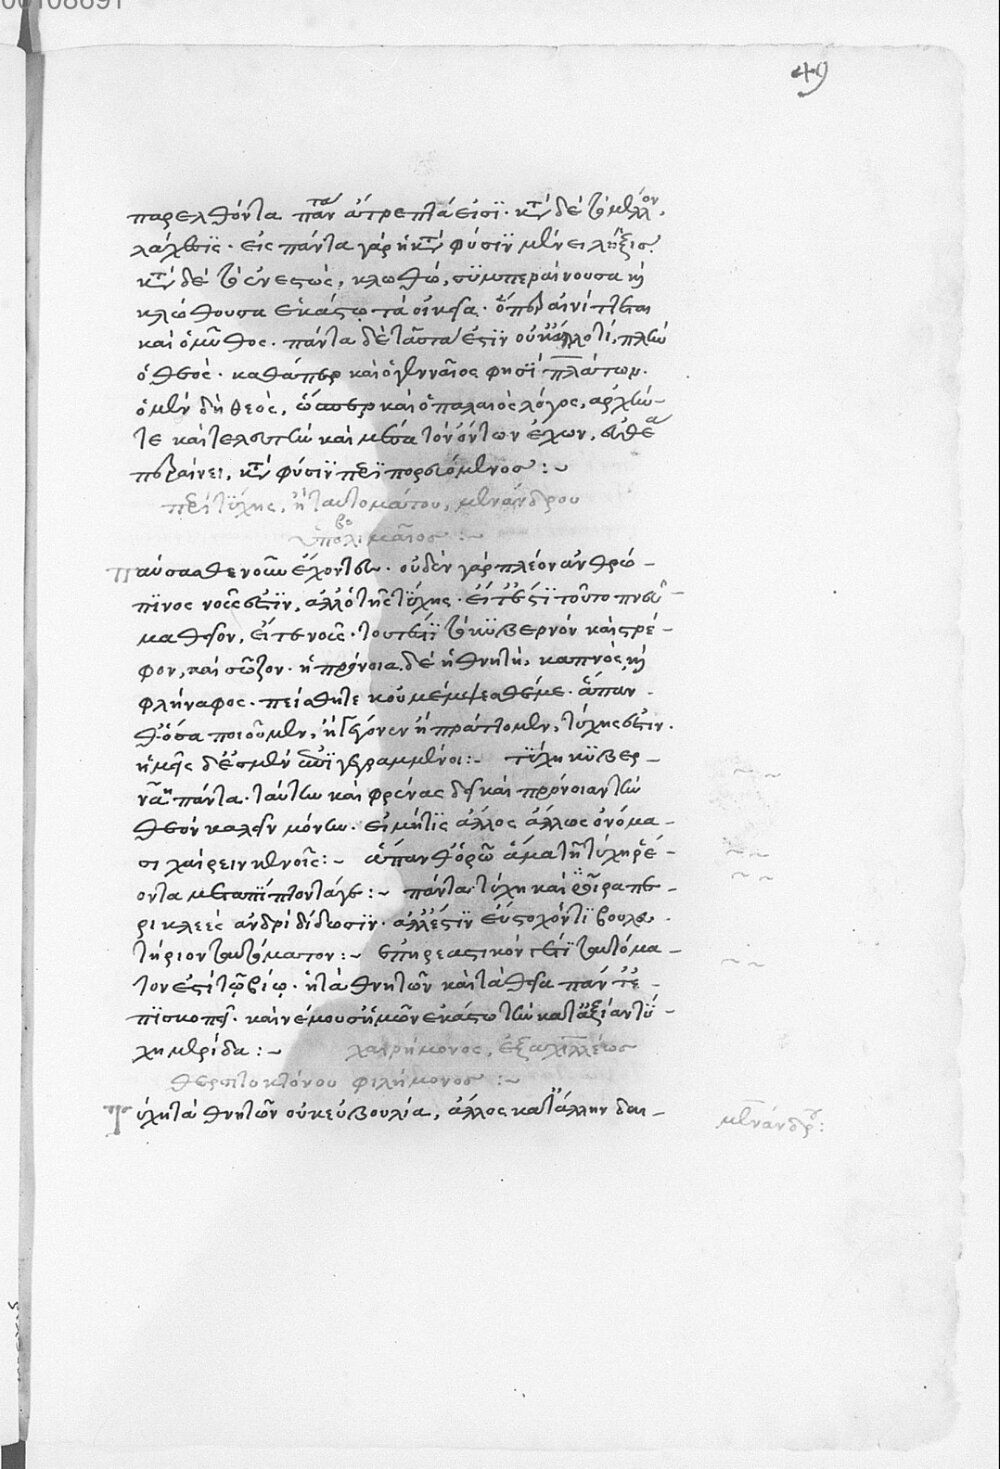 00108691
49
παρελθόντα πάντα ἄτρεπτά εἰσϊ· κατὰ δὲ τὸ μέλλον,
λάχεσϊς· εἰς πάντα γὰρ ἡ κατὰ φύσϊν μένει λῆξις·
κατὰ δὲ τὸ ἐνεστὼς, κλωθώ, συμπεραίνουσα καὶ
κλώθουσα ἑκάστῳ τὰ οἰκεῖα· ὅπερ αἰνίττεται
καὶ ὁ μῦθος· πάντα δὲ ταῦτα ἐστϊν οὐκ ἄλλό τι, πλὴν
ὁ θεὸς· καθάπερ καὶ ὁ γενναῖος φησϊ πλάτων·
ὁ μὲν δὴ θεὸς, ὥσπερ καὶ ὁ παλαιὸς λόγος, ἀρχήν
τε καὶ τελευτὴν καὶ μέσα τῶν ὄντων ἔχων, εὐθέα
περαίνει, κατὰ φύσϊν περϊπορευόμενος :~
περὶ τύχης, ἢ ταυτομάτου, μενάνδρου
ὑποβολιμαῖος :~
παύσασθε νοῦν ἔχοντες· οὐδὲν γὰρ πλέον ἀνθρώ-
πϊνος νοῦς ἐστϊν, ἀλλὸ τῆς τύχης· εἴτ' ἐστϊ τοῦτο πνεῦ-
μα θεῖον, εἴτε νοῦς· τοῦτ' ἐστϊ τὸ κυβερνὸν καὶ στρέ-
φον, καὶ σῶζον· ἡ πρόνοια δὲ ἡ θνητὴ, καπνὸς καὶ
φλήναφος· πείσθητε κοὐ μέμψεσθέ με· ἅπαν-
θ' ὅσα ποιοῦμεν, ἢ λέγομεν ἢ πράττομεν, τύχης ἐστϊν·
ἡμεῖς δ' ἐσμὲν ἐπϊγεγραμμένοι :~ τύχη κυβερ-
νᾷ πάντα· ταύτην καὶ φρένας δεῖ καὶ πρόνοιαν τὴν
θεὸν καλεῖν μόνην· εἰ μήτϊς ἄλλος ἄλλως ὀνόμα-
σι χαίρειν κενοῖς :~ ἅπανθ' ὁρῶ ἅμα τῇ τύχῃ ῥέ-
οντα μεταπίπτοντά γε :~
ρι κλεὲς ἀνδρὶ δίδωσιν· ἀλλ' ἐστϊν εὐστοχόν τϊ βουλευ-
τήριον ταυτόματον :~ ἐπηρεαστικόν ἐστϊ ταυτόμα-
τον ἐστὶ τῷ βίῳ· ἢ τὰ θνητῶν καὶ τὰ θεῖα πάντ' ἐ-
πϊσκοπεῖ· καὶ νέμουσ' ἡμῶν ἑκάστῳ τὴν κατ' ἀξίαν τύ-
χη μερίδα :~ χαιρήμονος, ἐξ ἀχϊλλέως
θερσιτοκτόνου φιλήμονος :~
τύχη τὰ θνητῶν οὐκ εὐβουλία, ἄλλος κατ' ἄλλην δαι-
μενάνδρου :